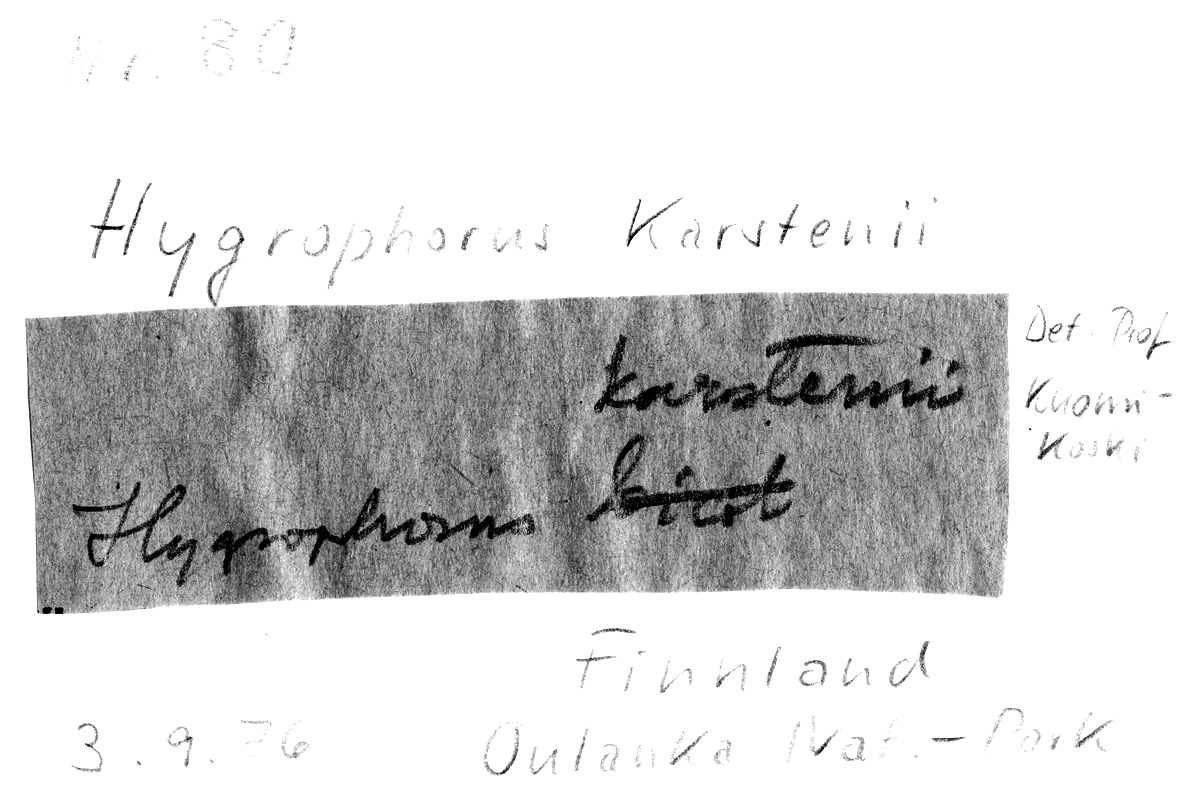 Nr. 80
Hygrophorus Karstenii
Det. Prof
Kuomi-
Koski
karstenii
Hygrophorus
Finnland
3.9.76 Oulanka Nat.-Park